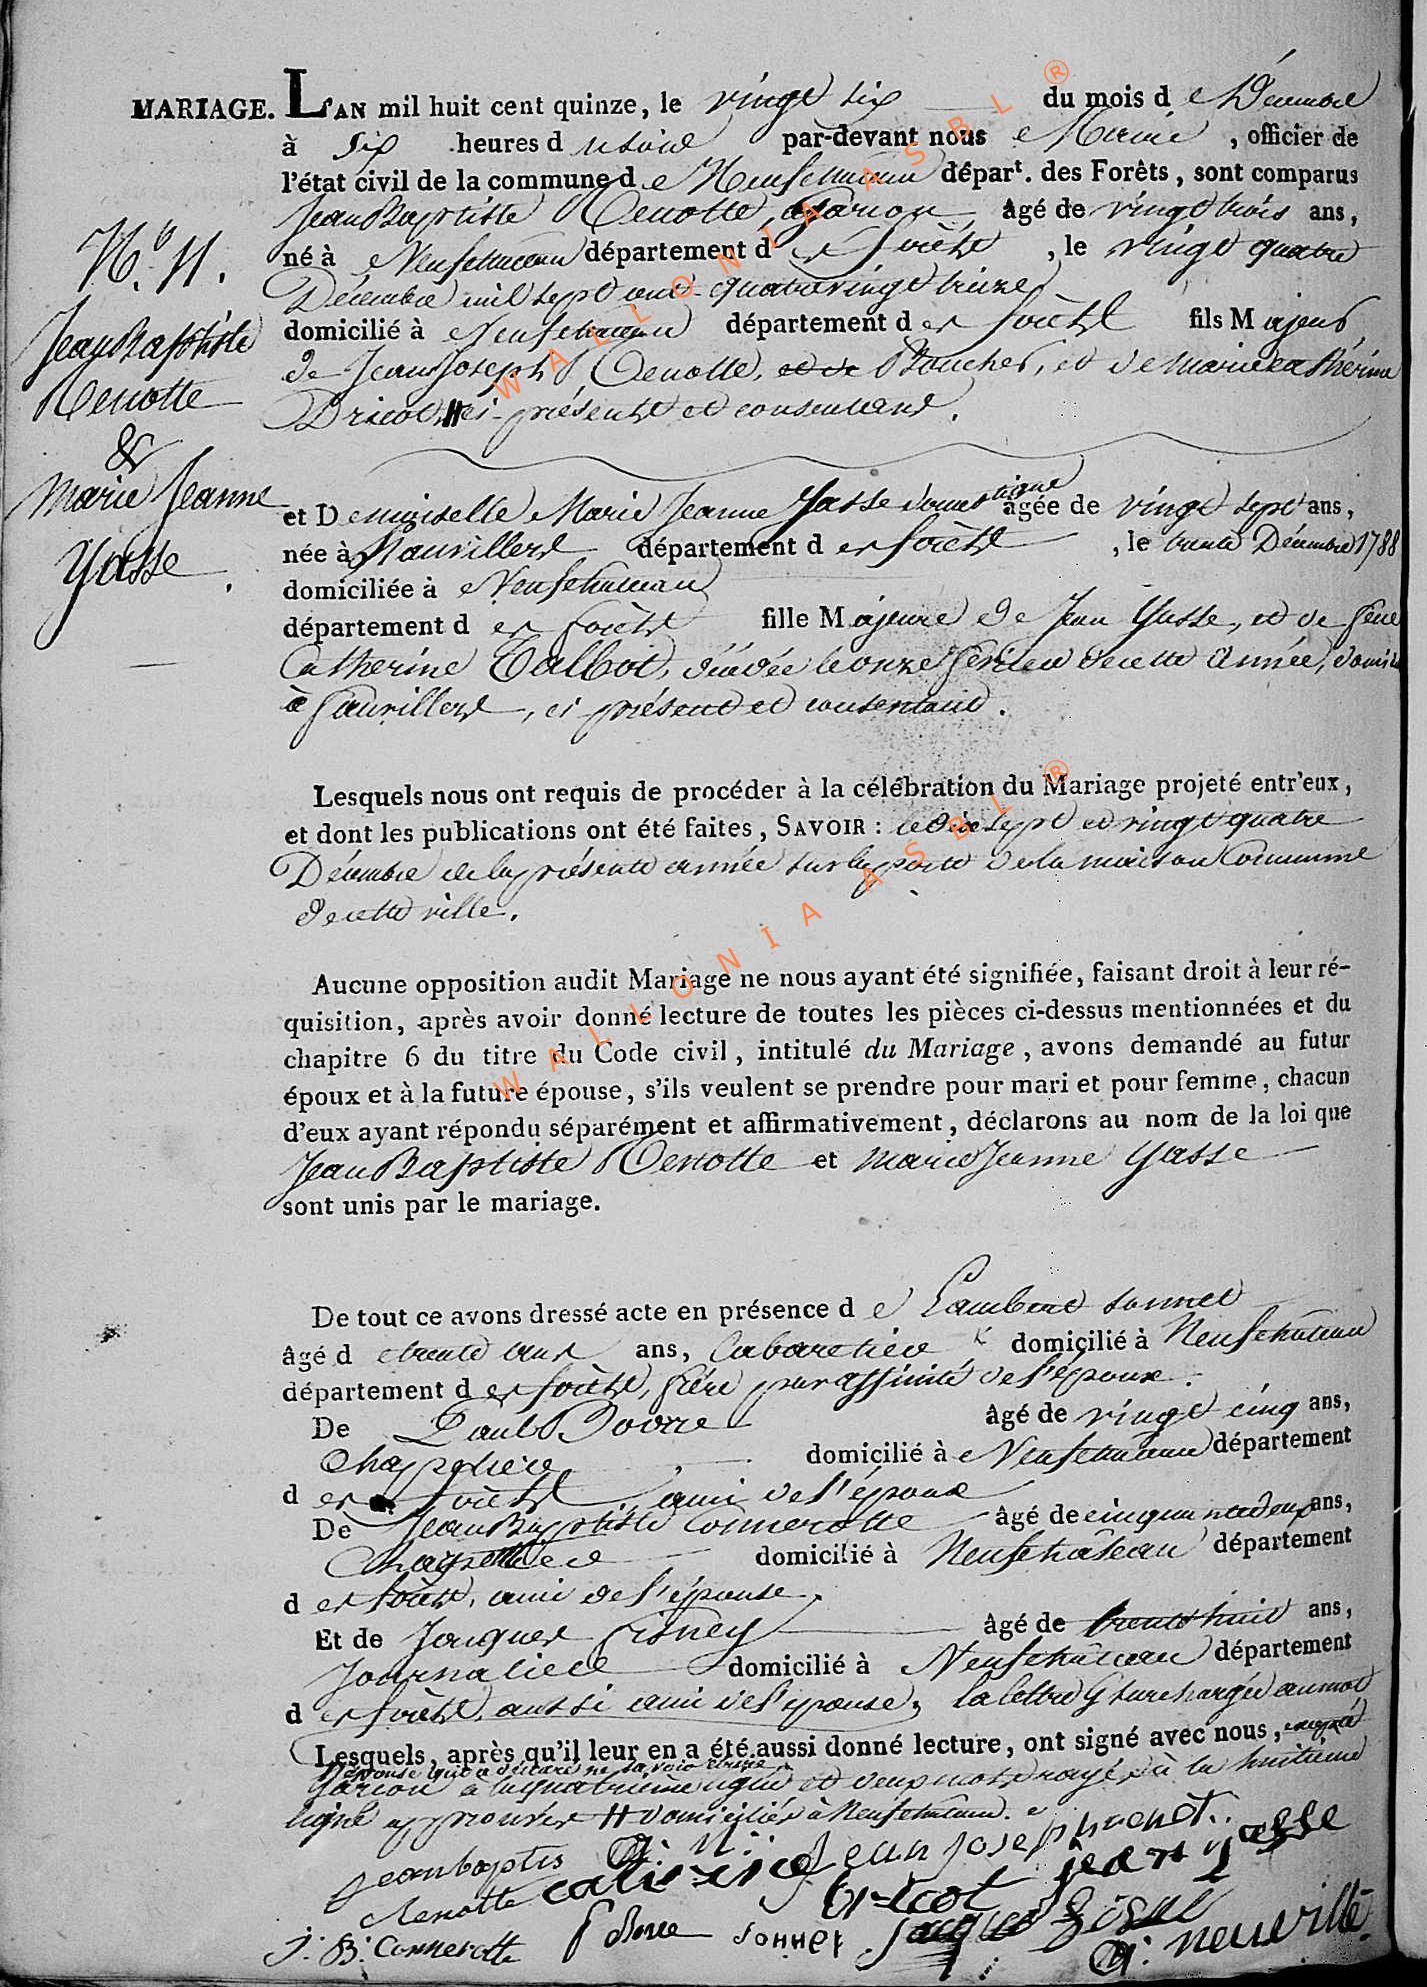 MARIAGE. L'AN mil huit cent quinze, le vingt six du mois de Décembre
à six heures du soir par-devant nous Maire, officier de
l'état civil de la commune de Neufchateau départ. des Forêts, sont comparus
Jean Baptiste Renotte, garçon âgé de vingt trois ans,
né à Neufchateau département des forêts, le vingt quatre
Décembre mil sept cent quatrevingt
domicilié à Neufchateau département des forêts fils Majeur
de Jean Joseph Renotte, et de Boucher, et de Marie Catherine
Dricot, H ci présents et consentans.
N.° 11.
Jean Baptiste
Renotte
&
Marie Jeanne
Yasse
et Demoiselle Marie Jeanne Yasse domestique âgée de vingt sept ans,
née à Fauvillers département des forêts, le trente Décembre 1788
domiciliée à Neufchateau
département des forêts fille Majeure de Jean Yasse, et de feue
Catherine Talbot, décédée le onze février de cette année,
à Fauvillers, ci présent et consentant.
Lesquels nous ont requis de procéder à la célébration du Mariage projeté entr'eux,
et dont les publications ont été faites, SAVOIR : le dix sept et vingt quatre
Décembre de la présente année sur la porte de la maison Commune
de cette ville.
Aucune opposition audit Mariage ne nous ayant été signifiée, faisant droit à leur ré-
quisition, après avoir donné lecture de toutes les pièces ci-dessus mentionnées et du
chapitre 6 du titre du Code civil, intitulé du Mariage, avons demandé au futur
époux et à la future épouse, s'ils veulent se prendre pour mari et pour femme, chacun
d'eux ayant répondu séparément et affirmativement, déclarons au nom de la loi que
Jean Baptiste Renotte et Marie Jeanne Yasse
sont unis par le mariage.
De tout ce avons dressé acte en présence de Lambert Sonnet
âgé de trente ans, Cabaretier domicilié à Neufchâteau
département des forêts, frère par affinité de l'époux.
De Paul Bovre âgé de vingt cinq ans,
Chapelier domicilié à Neufchateau département
des forêts ami de l'époux
De Jean Baptiste Connerotte âgé de cinquante deux ans,
Chapelier domicilié à Neufchâteau département
des forêts, ami de l'épouse.
Et de Jacques Gisney âgé de trente huit ans,
Journalier domicilié à Neufchateau département
des forêts, aussi ami de l'épouse, la lettre G surchargée au mot
Lesquels, après qu'il leur en a été aussi donné lecture, ont signé avec nous, excepté
l'épouse qui a déclaré ne savoir écrire
garçon à la quatrieme ligne et deux mots rayés à la huitieme
ligne approuvés H domiciliés à Neufchateau.
jean baptis Jean Joseph
Renotte caterine dricot jean yasse
J: B: Connerotte P Bovre Sonnet jacque
neuville
WALLONIA ASBL ®
WALLONIA ASBL ®